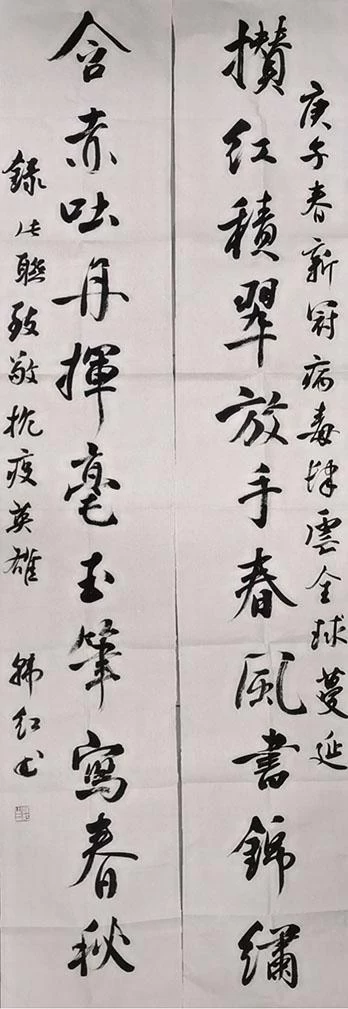 庚子春新冠病毒肆虐全球蔓延
攢紅積翠放手春風書錦繡
含赤吐丹揮毫玉筆寫春秋
錄此聯致敬抗疫英雄 韩红书